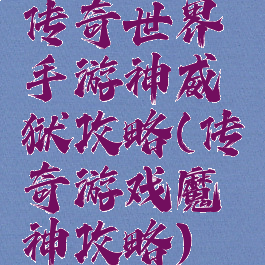 传奇世界
手游神威
狱攻略(传
奇游戏魔
神攻略)